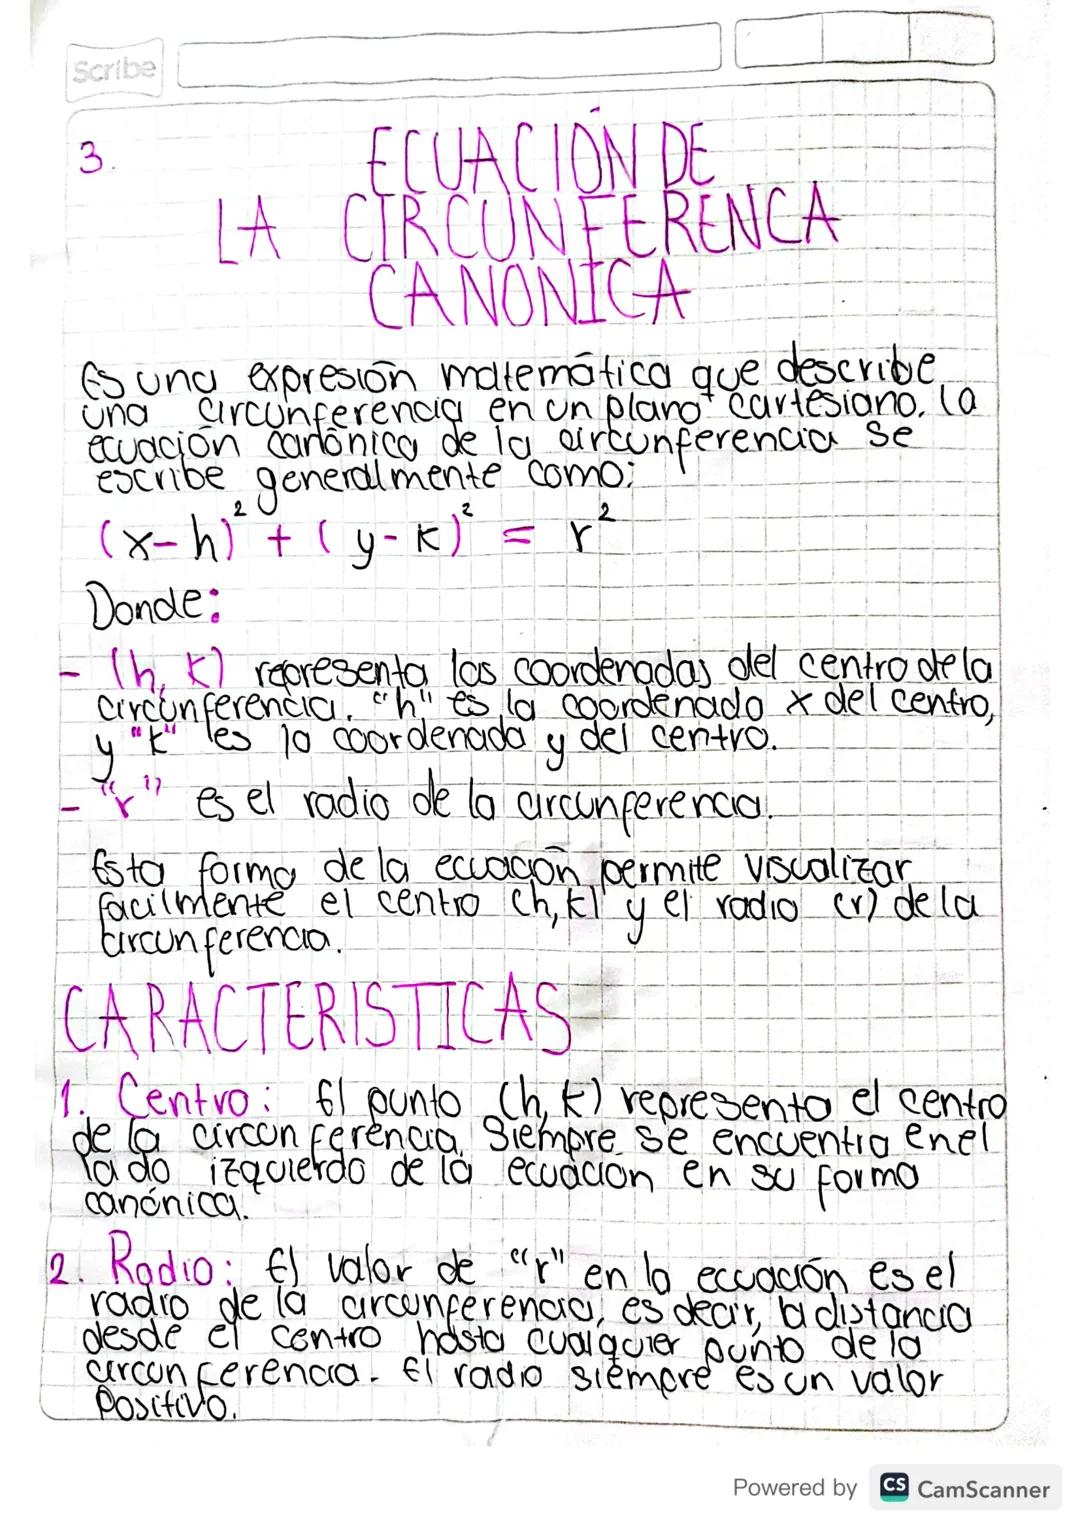 Scribe
3.
ECUACIÓN DE
LA CIRCUNFERENCA
CANONICA
Es una expresión matemática que describe
una circunferencia en un plano cartesiano. la
ecuación canónica de la circunferencia se
escribe generalmente como:
(x-h)² + (y-k)² = r²
Donde:
- (h, k) representa las coordenadas del centro de la
circunferencia. "h" es la coordenada x del centro,
y "k" es la coordenada y del centro.
- "r" es el radio de la circunferencia.
Esta forma de la ecuación permite visualizar
facilmente el centro (h, k) y el radio (r) de la
circunferencia.
CARACTERISTICAS
1. Centro: El punto (h, k) representa el centro
de la circunferencia. Siempre se encuentra en el
lado izquierdo de la ecuación en su forma
canónica.
2. Radio: El valor de "r" en la ecuación es el
radio de la circunferencia, es decir, la distancia
desde el centro hasta cualquier punto de la
circunferencia. El radio siempre es un valor
Positivo.
Powered by CS CamScanner